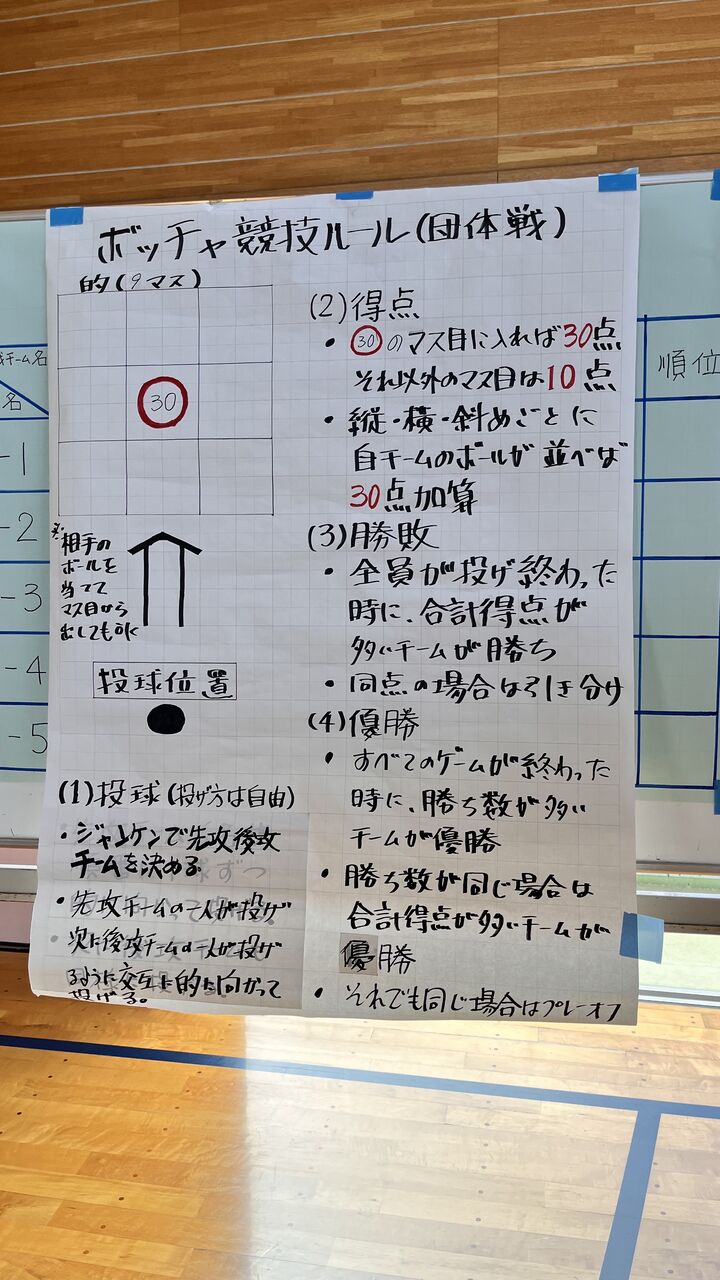 ボッチャ競技ルール(団体戦)
的(9マス)
30
※相手の
ボールを
当てて
マス目から
出してもOK
投球位置
(1)投球(投げ方は自由)
・ジャンケンで先攻後攻
チームを決める
・先攻チームの一人が投げ
次に後攻チームの一人が投げ
るように交互に的に向かって
投げる。
(2)得点
・㉚のマス目に入れば30点
それ以外のマス目は10点
・縦・横・斜めごとに
自チームのボールが並べば
30点加算
(3)勝敗
・全員が投げ終わった
時に、合計得点が
多いチームが勝ち
・同点の場合は引き分け
(4)優勝
・すべてのゲームが終わった
時に、勝ち数が多い
チームが優勝
・勝ち数が同じ場合は
合計得点が多いチームが
優勝
・それでも同じ場合はプレーオフ
チーム名
名
-1
-2
-3
-4
-5
順位